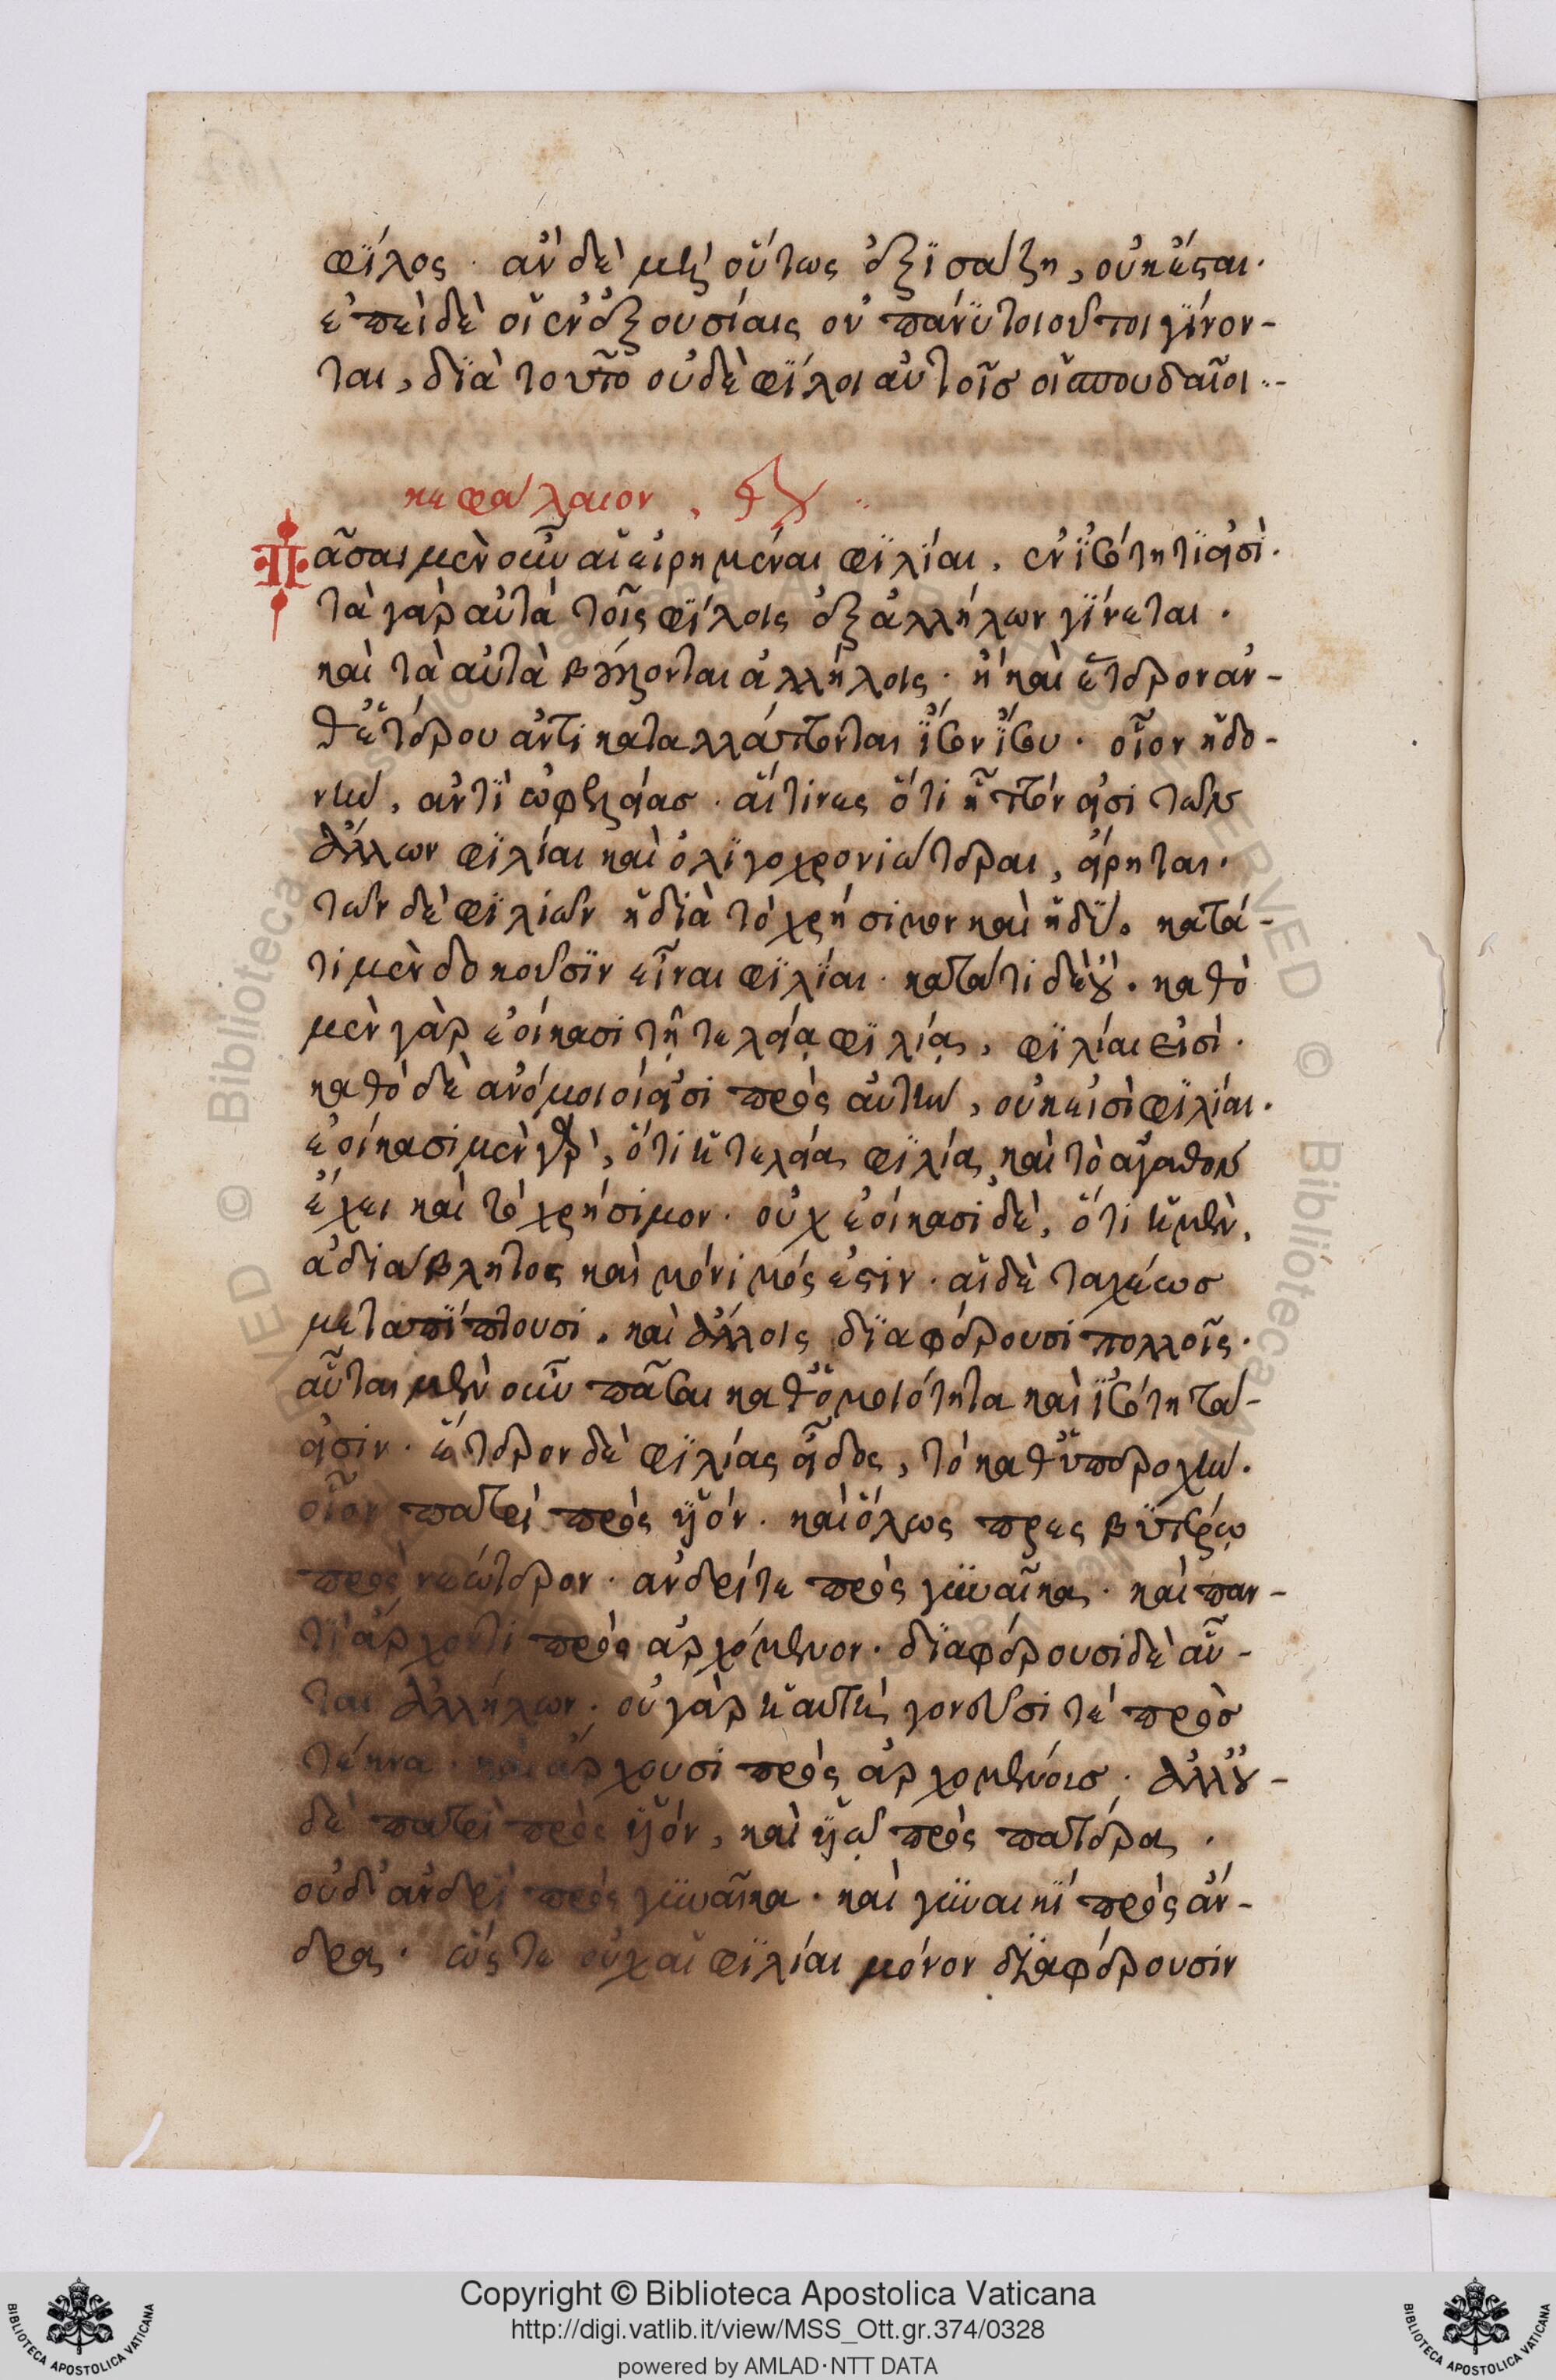 φΐλος· ἀν δὲ μὴ οὕτως ἐξϊσάζη, οὐκ ἔσται·
ἐπεὶ δὲ οἱ ἐν ἐξουσίαις οὐ πάνϋ τοιοῦτοι γΐνον-
ται, δϊὰ τοῦτο οὐδὲ φΐλοι αὐτοῖς οἱ σπουδαῖοι··-
κεφάλαιον,
Πᾶσαι μὲν οὖν αἱ εἰρημέναι φϊλΐαι, ἐν ἰσότητϊ εἰσὶ·
τὰ γὰρ αὐτὰ τοῖς φΐλοις ἐξ ἀλλήλων γΐνεται·
καὶ τὰ αὐτὰ βούλονται ἀλλήλοις· ἢ καὶ ἕτερον ἀν-
θ' ἑτέρου ἀντικαταλλάττονται ἴσον ἴσου· οἷον ἡδο-
νὴν, ἀντῒ ὠφελείας· αἵτινες ὅτι ἧττόν εἰσι τῶν
ἄλλων φϊλίαι καὶ ὀλϊγοχρονιώτεραι, εἴρηται·
τῶν δὲ φϊλιῶν ἡ δϊὰ τὸ χρήσιμον καὶ ἡδΰ. κατά-
τι μὲν δοκοῦσϊν εἶναι φϊλΐαι· κατάτι δὲ οὔ· καθὸ
μὲν γὰρ ἐοίκασι τῇ τελείᾳ φϊλίᾳ, φϊλίαι εἰσὶ·
καθὸ δὲ ἀνόμοιοί εἰσι πρὸς αὐτὴν, οὐκ εἰσὶ φϊλίαι·
ἐοίκασι μὲν γὰρ, ὅτι ἡ τελεία φϊλία καὶ τὸ ἀγαθὸν
ἔχει καὶ τὸ χρήσιμον· οὐχ ἐοίκασι δὲ, ὅτι ἡ μὲν,
ἀδιάβλητος καὶ μόνιμός ἐστιν· αἱ δὲ ταχέως
μεταπΐπτουσι· καὶ ἄλλοις δϊαφέρουσι πολλοῖς·
αὗται μὲν οὖν πᾶσαι καθ' ὁμοιότητα καὶ ἰσότητά-
εἰσιν· ἕτερον δὲ φϊλίας εἶδος, τὸ καθ' ὑπεροχὴν·
οἷον πατρὶ πρὸς ϋἱόν· καὶ ὅλως πρεσβϋτέρῳ
πρὸς νεώτερον· ἀνδρί τε πρὸς γυναῖκα· καὶ παν-
τὶ ἄρχοντι πρὸς ἀρχόμενον· δϊαφέρουσι δὲ αὗ-
ται ἀλλήλων· οὐ γὰρ ἡ αὐτὴ γονεῦσί τε πρὸς
τέκνα· καὶ ἄρχουσι πρὸς ἀρχομένοις· ἀλλ' οὐ-
δὲ πατρὶ πρὸς ϋἱόν, καὶ ϋἱῷ πρὸς πατέρα·
οὐδ' ἀνδρὶ πρὸς γυναῖκα· καὶ γυναικῒ πρὸς ἄν-
δρα· ὥστε οὐχ αἱ φϊλίαι μόνον δϊαφέρουσιν
Copyright © Biblioteca Apostolica Vaticana
http://digi.vatlib.it/view/MSS_Ott.gr.374/0328
powered by AMLAD·NTT DATA